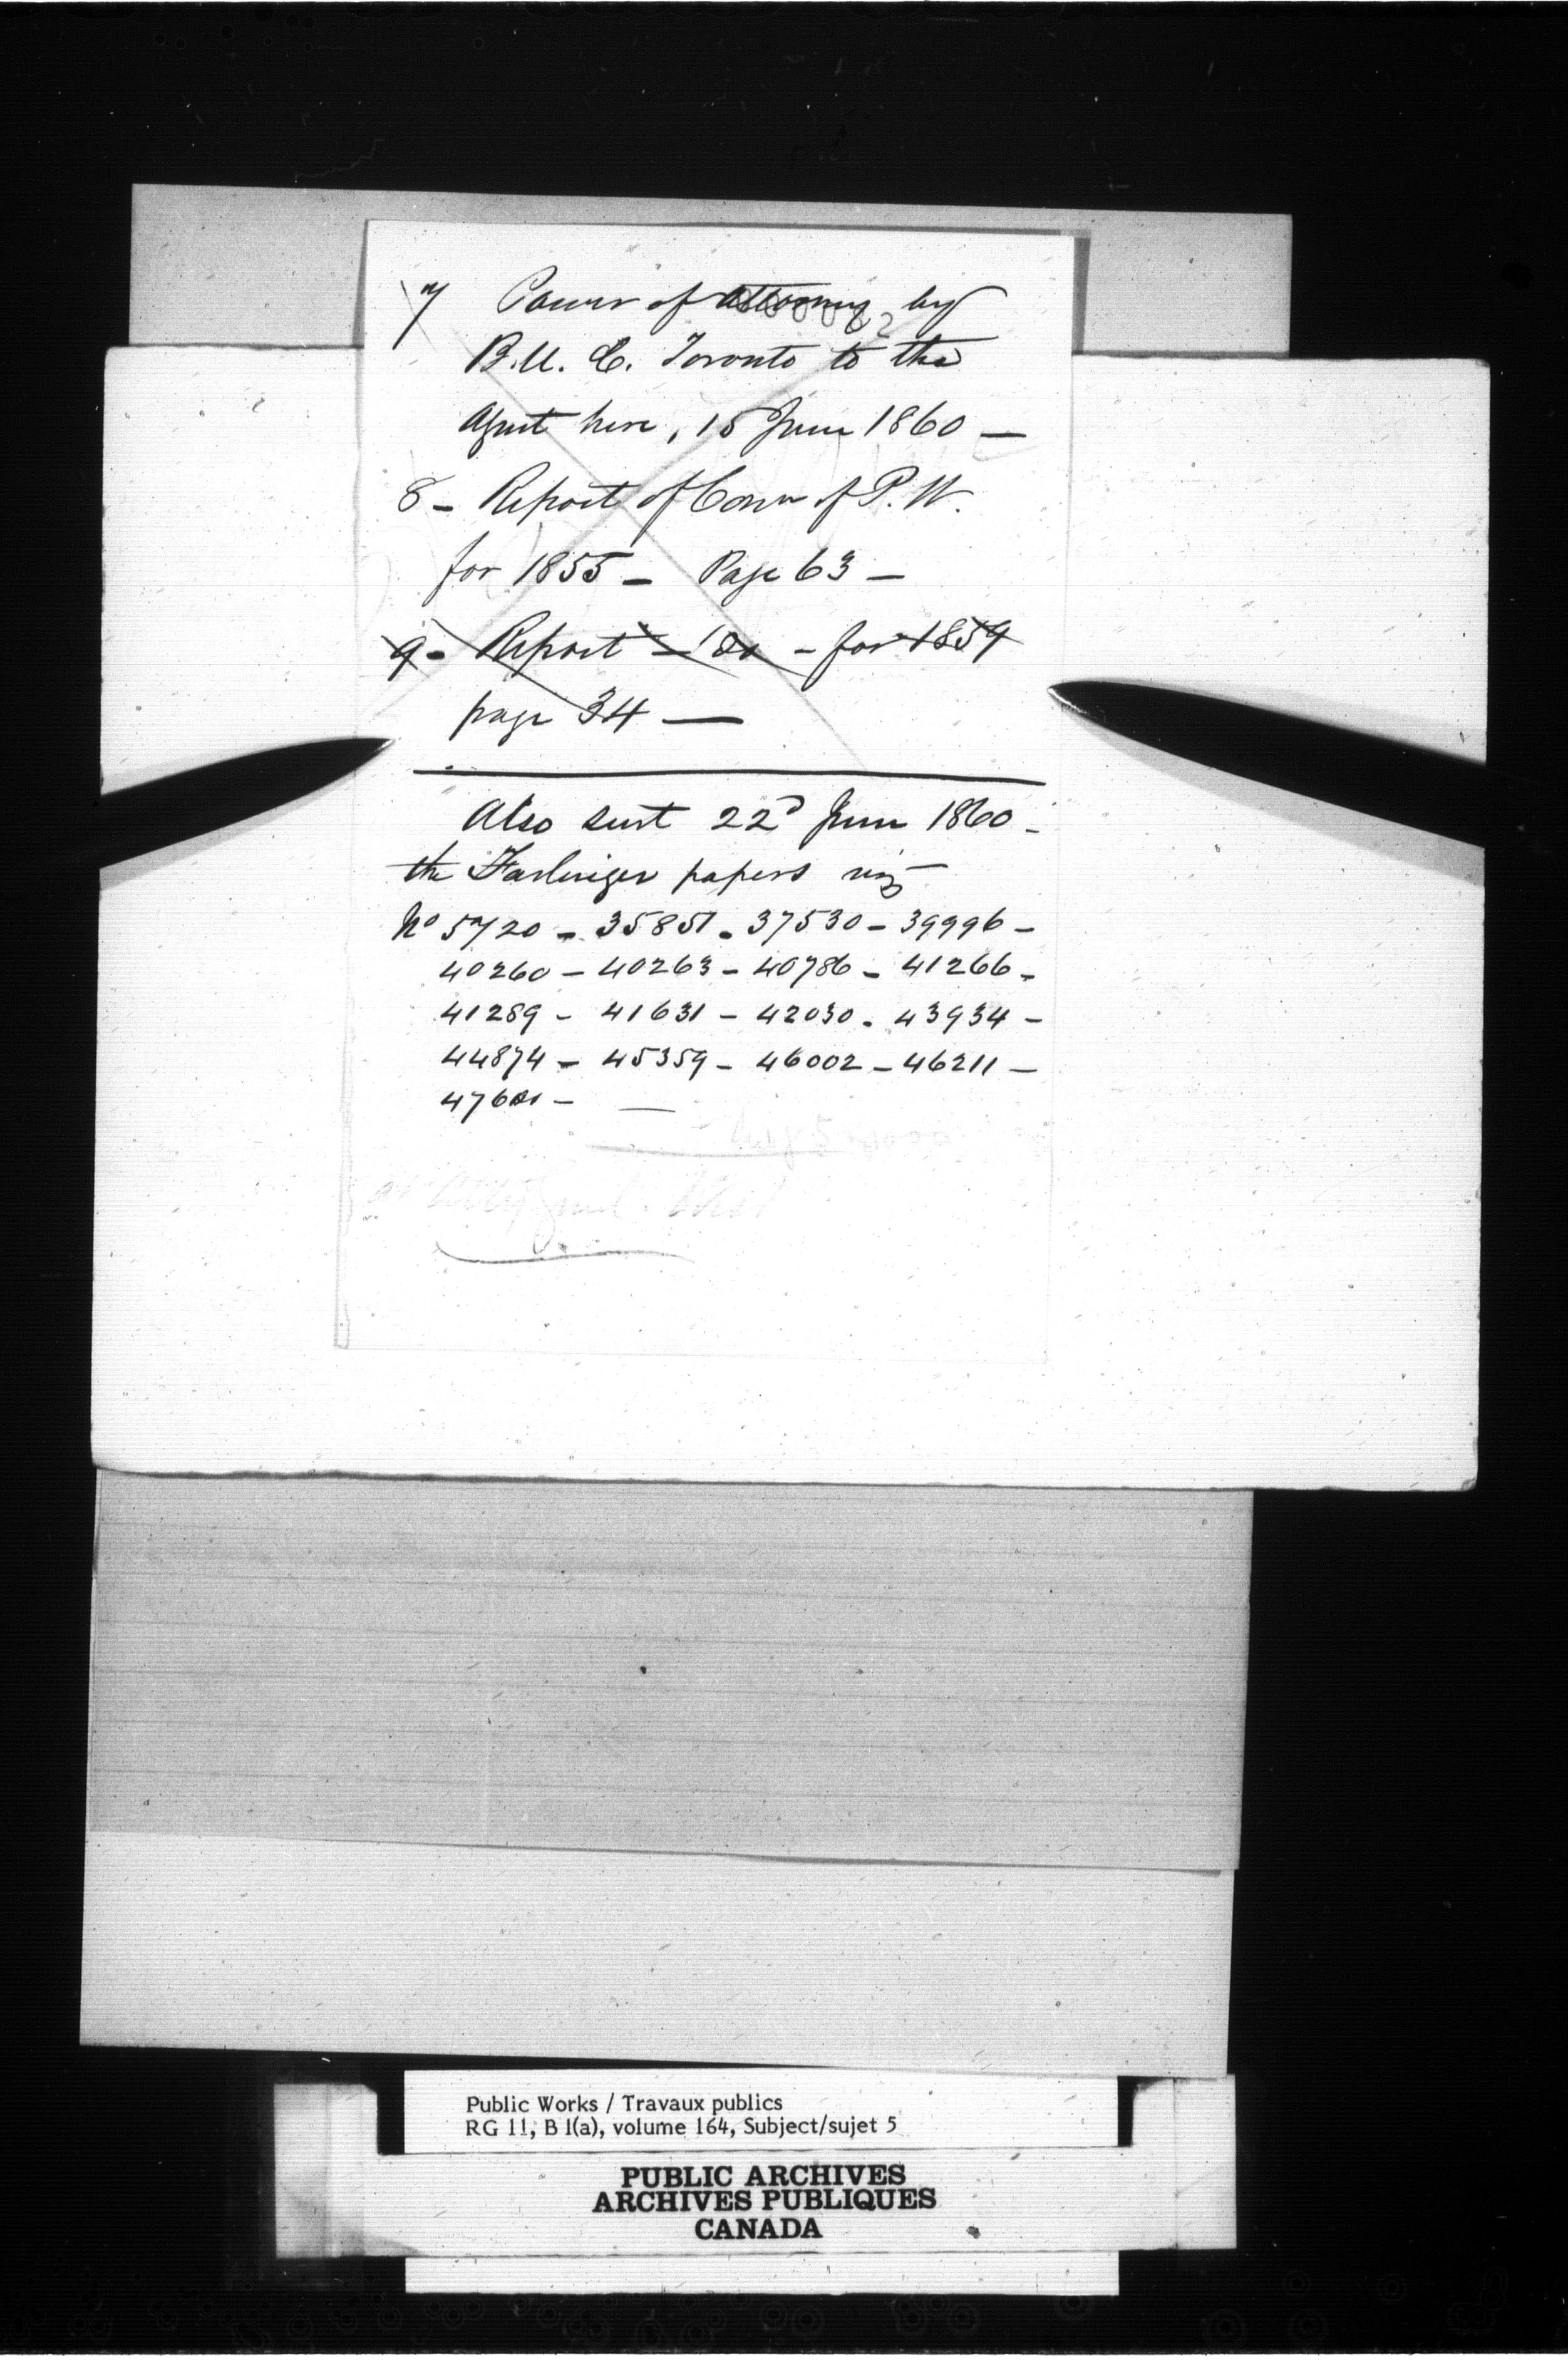 7 Power of Attorney by
B.U.C. Toronto to the
Agent here, 15 June 1860 —
8 - Report of Comr of P.W.
for 1855 - Page 63 -
9 - Report - do - for 1859
page 34 —
Also sent 22d June 1860 -
the Farlinger papers viz -
No 5720 - 35851 - 37530 - 39996 -
40260 - 40263 - 40786 - 41266 -
41289 - 41631 - 42030 - 43934 -
44874 - 45359 - 46002 - 46211 -
Public Works / Travaux publics
RG 11, B 1(a), volume 164, Subject/sujet 5
PUBLIC ARCHIVES
ARCHIVES PUBLIQUES
CANADA